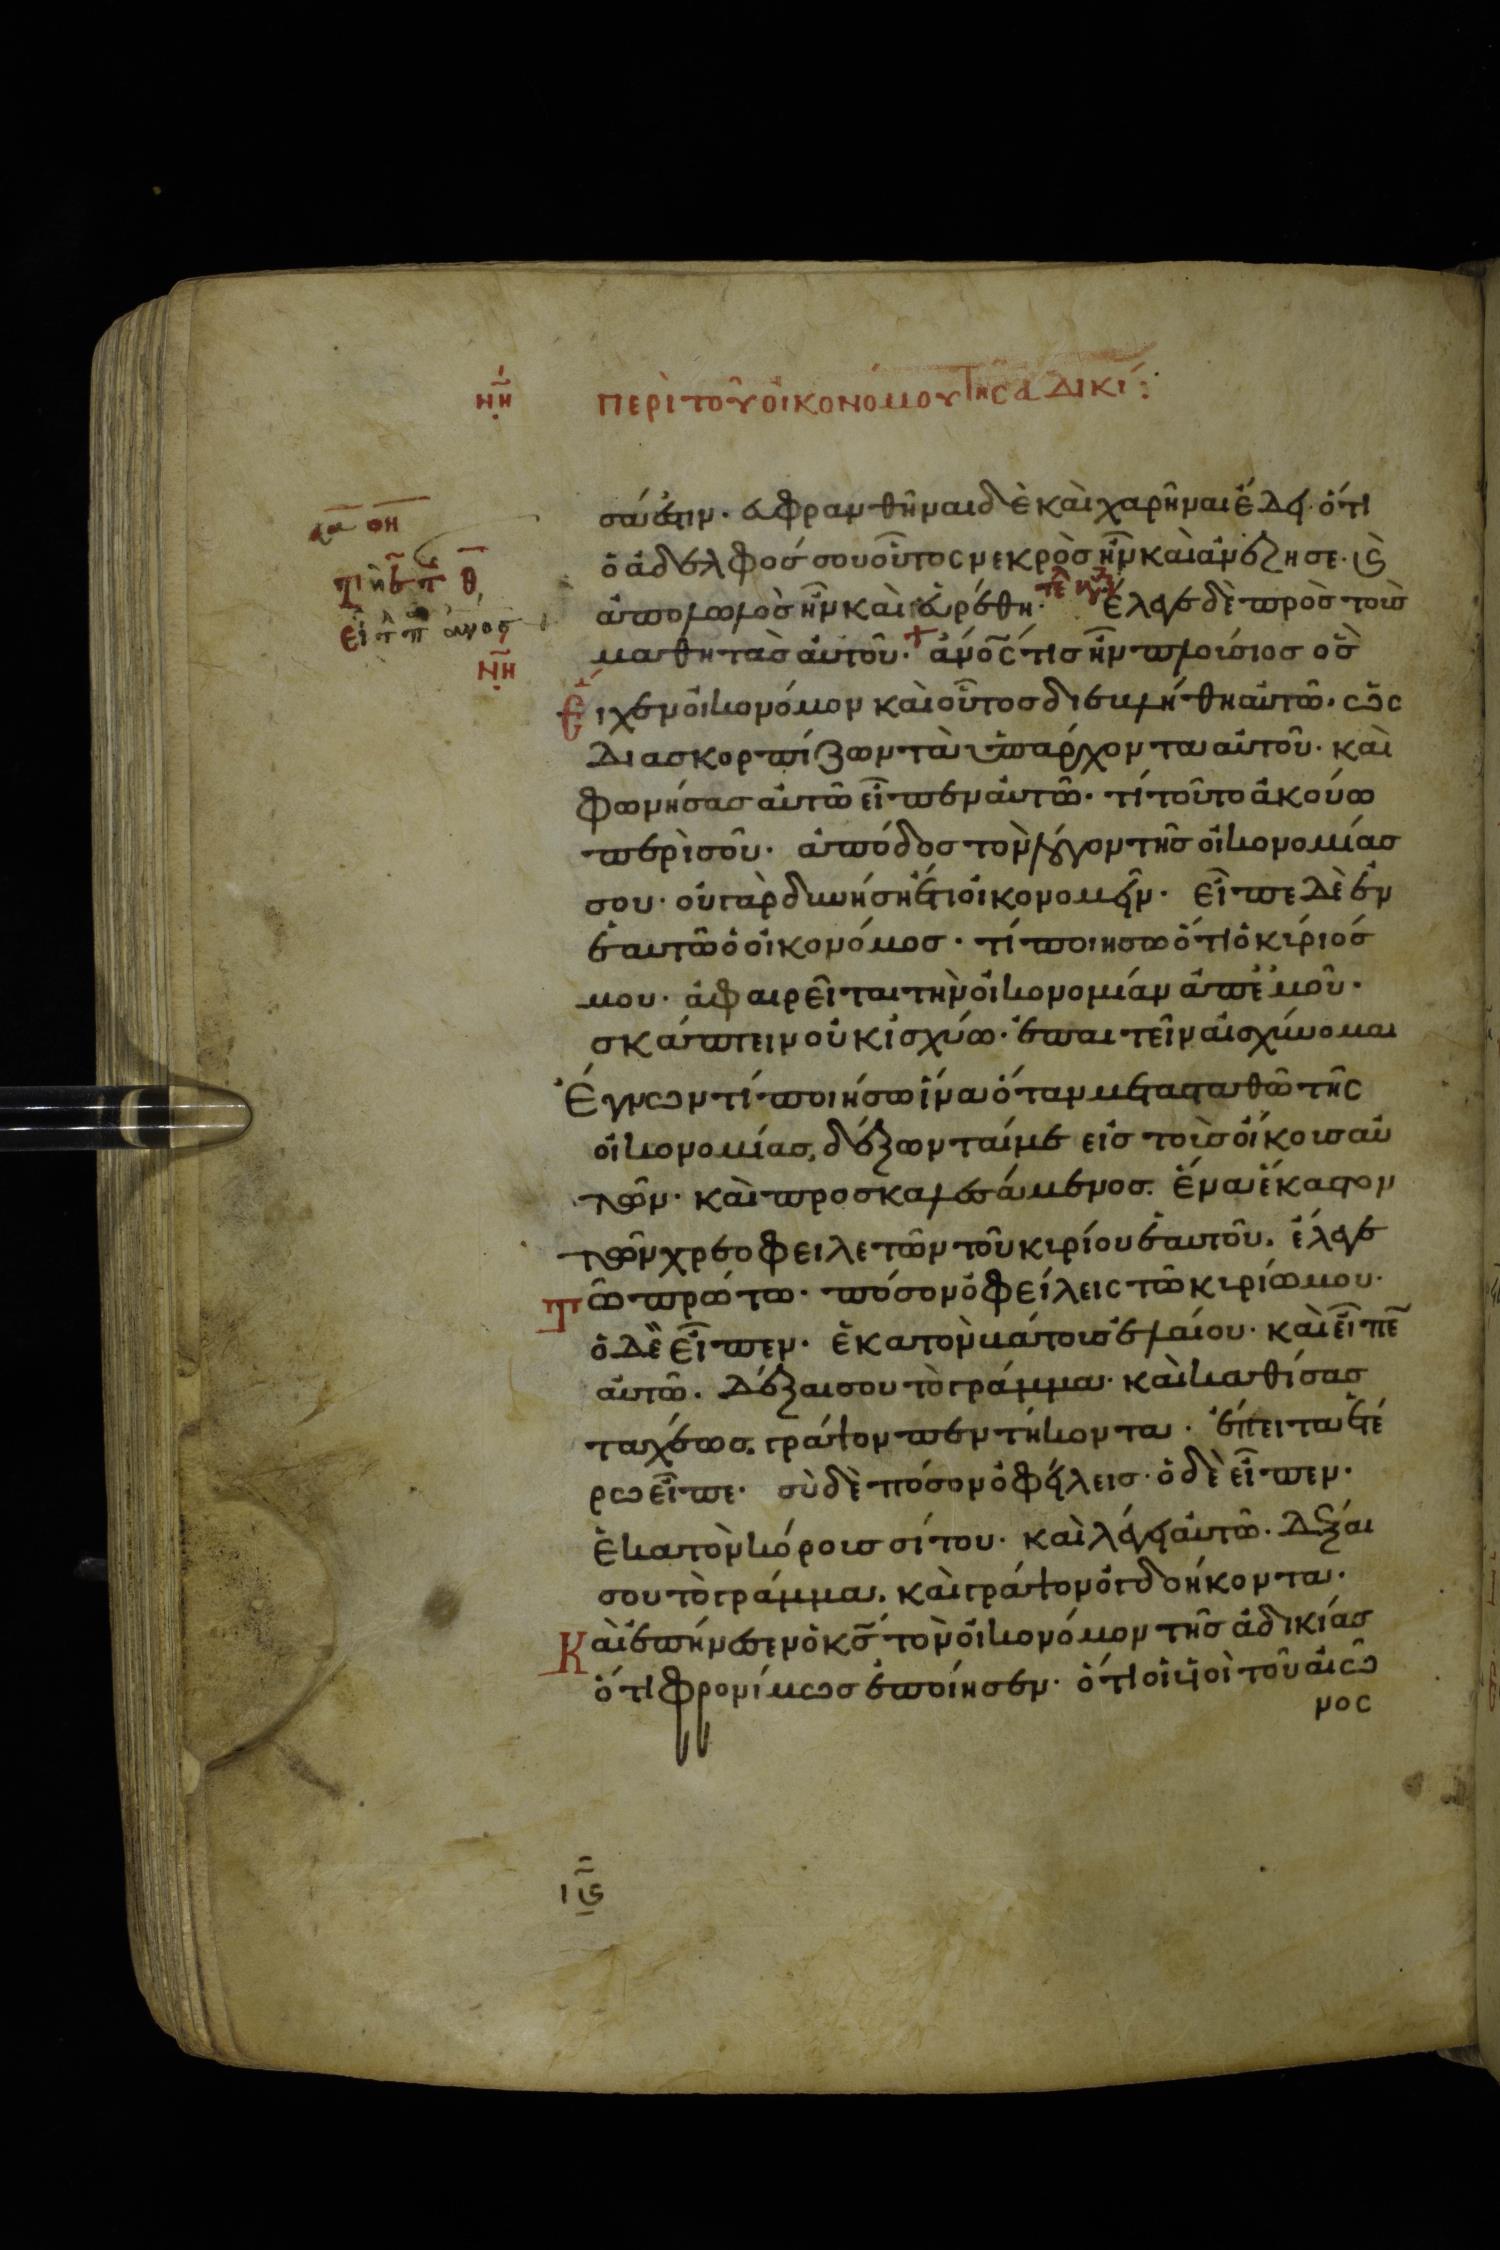 νη περὶ τοῦ οἰκονόμου τῆς ἀδικί:
σά ἐστιν· εὐφρανθῆναι δὲ καὶ χαρῆναι ἔδει· ὅτι
ὁ ἀδελφός σου οὗτος νεκρὸς ἦν καὶ ἀνέζησε· καὶ
ἀπολωλὸς ἦν καὶ εὑρέθη· τε Ἔλεγε δὲ πρὸς τοὺς
μαθητὰς αὐτοῦ· ἀνος τίς ἦν πλούσιος ὃς
νη
εἶχεν οἰκονόμον καὶ οὗτος διεβλήθη αὐτῶ· ὡς
διασκορπίζων τὰ ὑπάρχοντα αὐτοῦ· καὶ
φωνήσας αὐτῶ εἶπεν αὐτῶ· τί τοῦτο ἀκούω
περὶ σοῦ· ἀπόδος τὸν λόγον τῆς οἰκονομίας
σου· οὐ γὰρ δυνήση ἔτι οἰκονομεῖν· εἶπε δὲ ἐν
ἑαυτῶ ὁ οἰκονόμος· τί ποιησω ὅτι ὁ κύριός
μου· ἀφαιρεῖται τὴν οἰκονομίαν ἀπ' ἐμοῦ·
σκάπτειν οὐκ ἰσχύω· ἐπαιτεῖν αἰσχύνομαι
Ἔγνων τί ποιήσω ἵνα ὅταν μετασταθῶ τῆς
οἰκονομίας, δέξωνταί με εἰς τοὺς οἴκους αὐ
τῶν· καὶ προσκαλεσάμενος· ἕνα ἕκαστον
τῶν χρεοφειλετῶν τοῦ κυρίου ἑαυτοῦ. ἔλεγε
Τῶ πρώτω· πόσον ὀφείλεις τῶ κυρίω μου·
ὁ δὲ εἶπεν· ἑκατὸν βάτους ἐλαίου· καὶ εἶπε
αὐτῶ. δέξαι σου τὸ γράμμα· καὶ καθίσας
ταχέως. γράψον πεντήκοντα· ἔπειτα ἑτέ
ρω εἶπε· σὺ δὲ πόσον ὀφείλεις· ὁ δὲ εἶπεν·
ἑκατὸν κόρους σίτου· καὶ λέγει αὐτῶ. δέξαι
σου τὸ γράμμα. καὶ γράψον ὀγδοήκοντα·
Καὶ ἐπήνεσεν ὁ κς τὸν οἰκονόμον τῆς ἀδικίας
ὅτι φρονίμως ἐποίησεν· ὅτι οἱ υἱοὶ τοῦ αἰῶ
νος